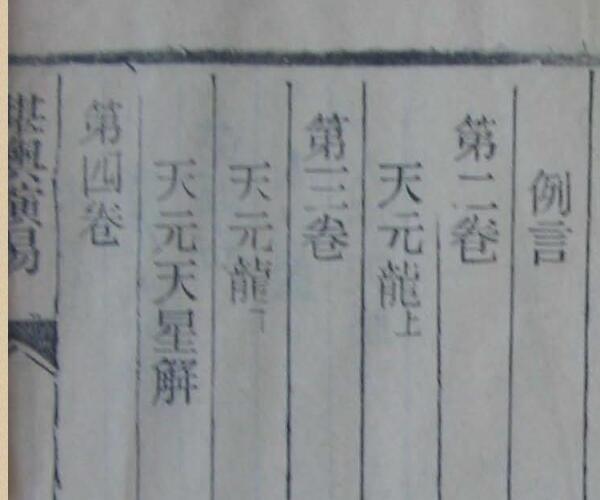 例言
第二卷
天元龍上
第三卷
天元龍下
天元天星解
第四卷
堪輿演易